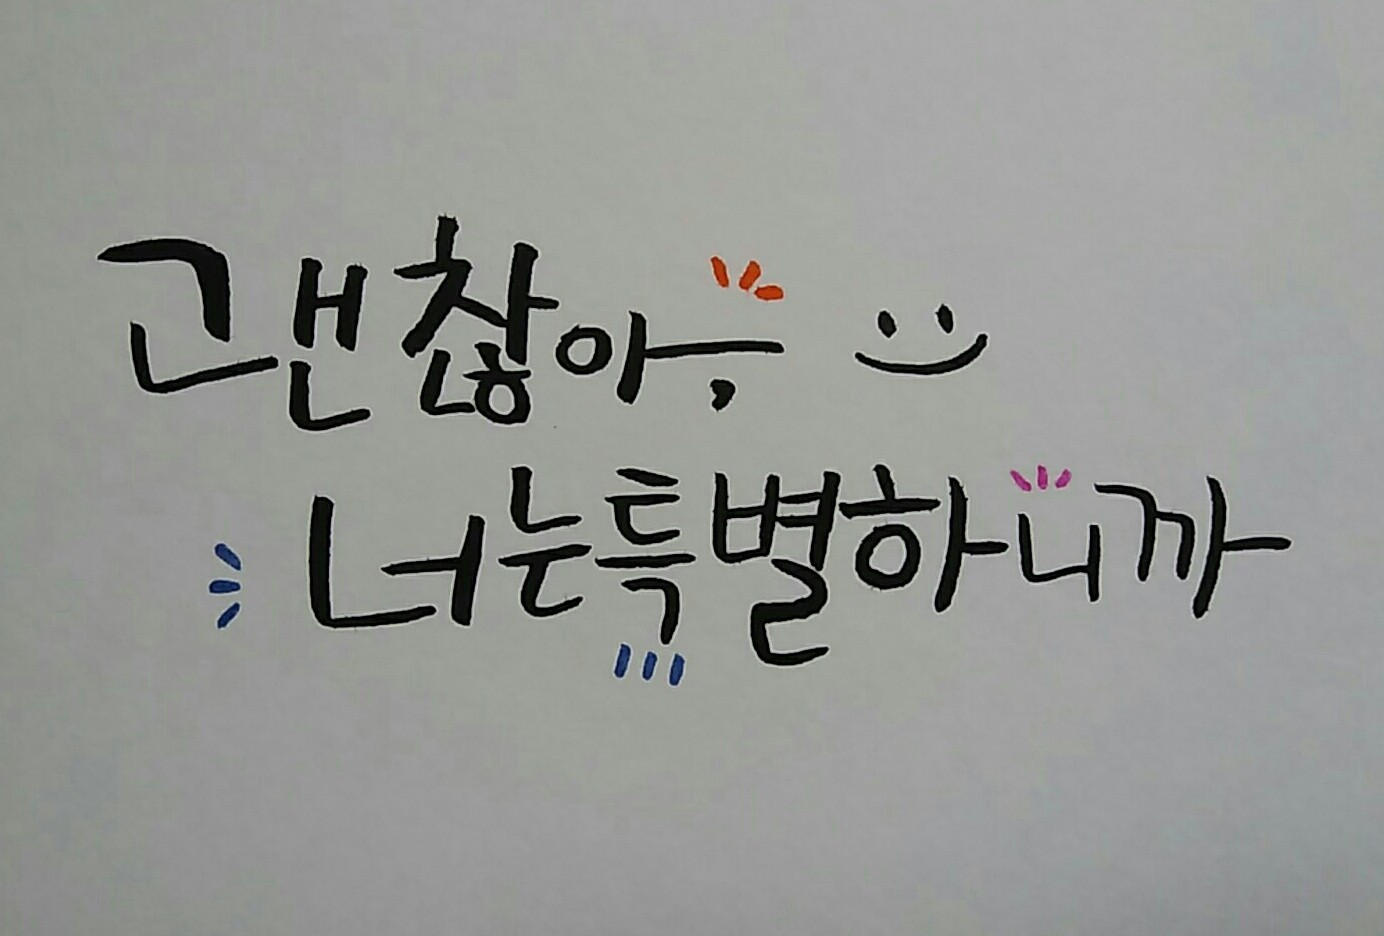 괜찮아,
너는특별하니까